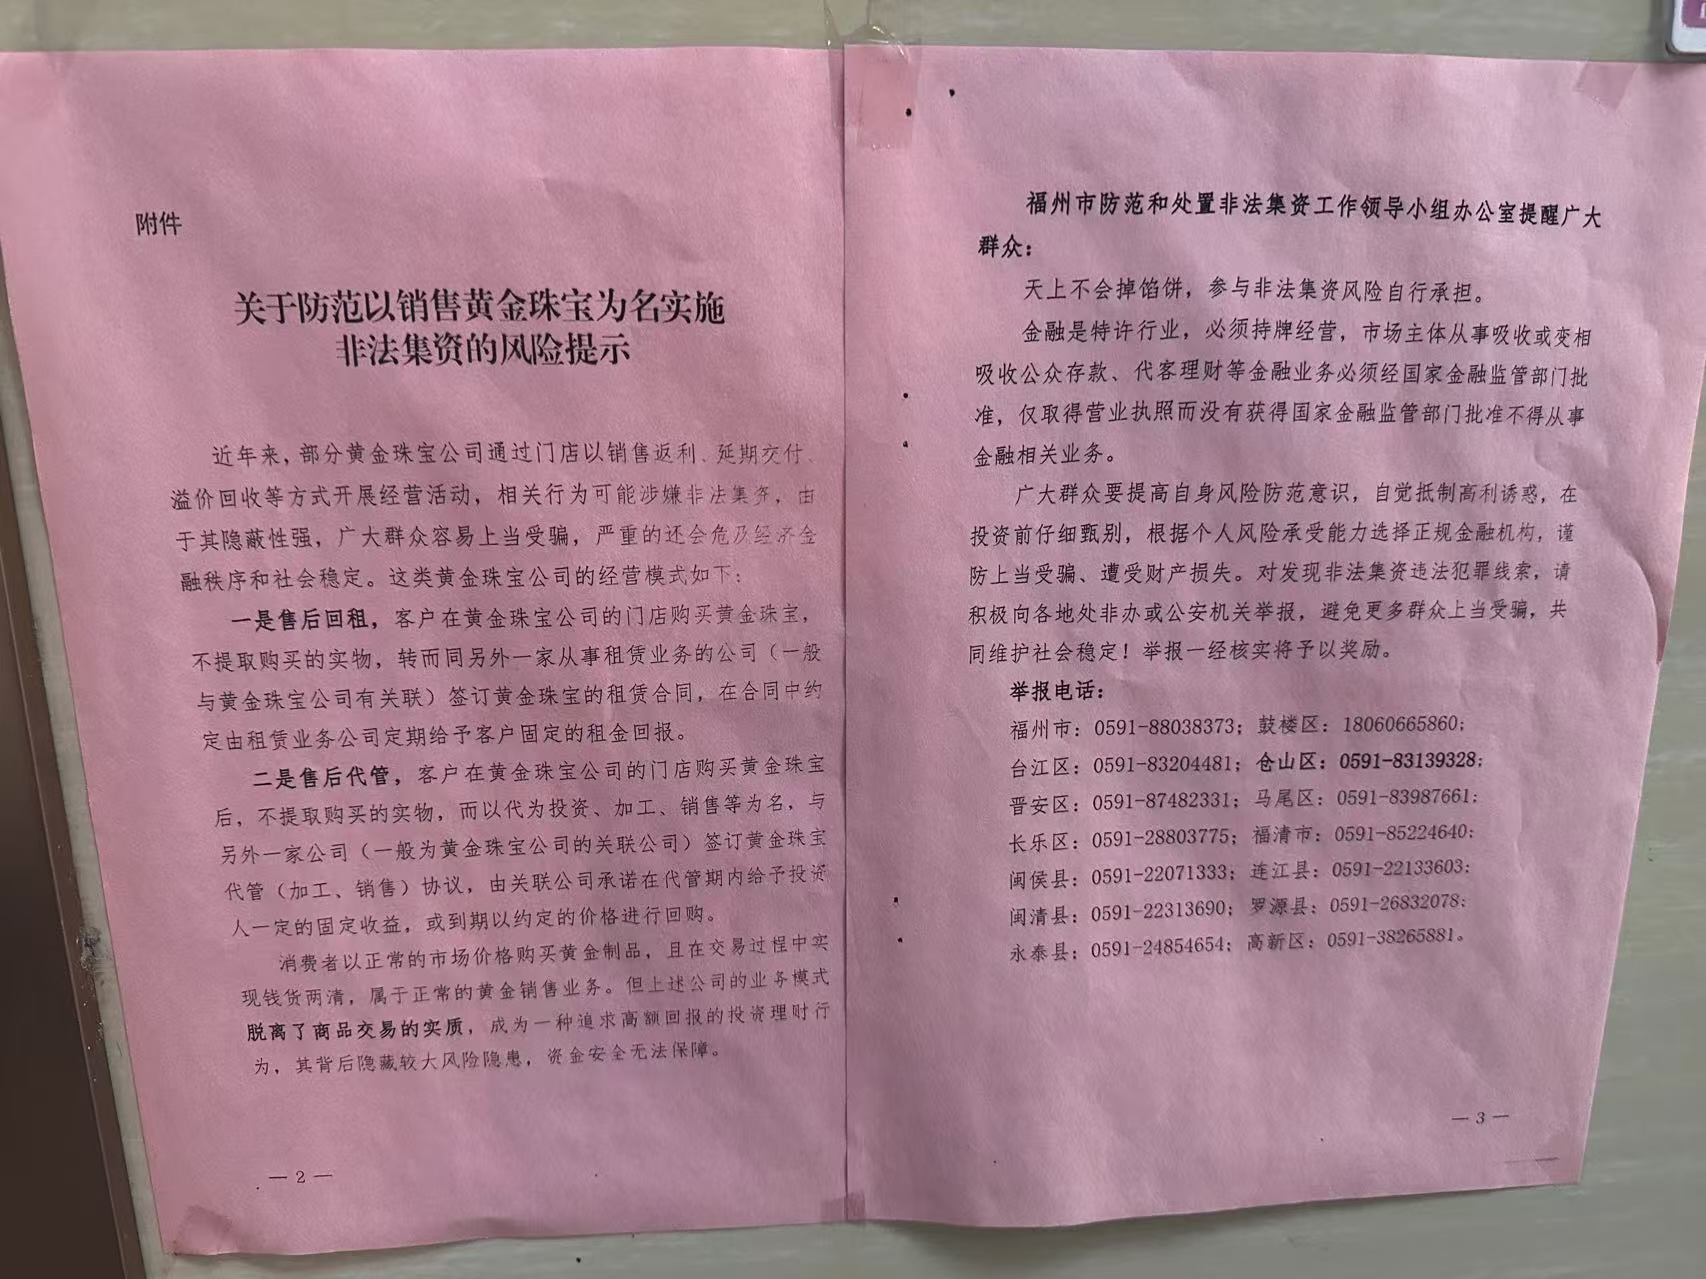 附件
关于防范以销售黄金珠宝为名实施
非法集资的风险提示
近年来，部分黄金珠宝公司通过门店以销售返利、延期交付、
溢价回收等方式开展经营活动，相关行为可能涉嫌非法集资，由
于其隐蔽性强，广大群众容易上当受骗，严重的还会危及经济金
融秩序和社会稳定。这类黄金珠宝公司的经营模式如下：
一是售后回租，客户在黄金珠宝公司的门店购买黄金珠宝，
不提取购买的实物，转而同另外一家从事租赁业务的公司（一般
与黄金珠宝公司有关联）签订黄金珠宝的租赁合同，在合同中约
定由租赁业务公司定期给予客户固定的租金回报。
二是售后代管，客户在黄金珠宝公司的门店购买黄金珠宝
后，不提取购买的实物，而以代为投资、加工、销售等为名，与
另外一家公司（一般为黄金珠宝公司的关联公司）签订黄金珠宝
代管（加工、销售）协议，由关联公司承诺在代管期内给予投资
人一定的固定收益，或到期以约定的价格进行回购。
消费者以正常的市场价格购买黄金制品，且在交易过程中实
现钱货两清，属于正常的黄金销售业务。但上述公司的业务模式
脱离了商品交易的实质，成为一种追求高额回报的投资理财行
为，其背后隐藏较大风险隐患，资金安全无法保障。
— 2 —
福州市防范和处置非法集资工作领导小组办公室提醒广大
群众：
天上不会掉馅饼，参与非法集资风险自行承担。
金融是特许行业，必须持牌经营，市场主体从事吸收或变相
吸收公众存款、代客理财等金融业务必须经国家金融监管部门批
准，仅取得营业执照而没有获得国家金融监管部门批准不得从事
金融相关业务。
广大群众要提高自身风险防范意识，自觉抵制高利诱惑，在
投资前仔细甄别，根据个人风险承受能力选择正规金融机构，谨
防上当受骗、遭受财产损失。对发现非法集资违法犯罪线索，请
积极向各地处非办或公安机关举报，避免更多群众上当受骗，共
同维护社会稳定！举报一经核实将予以奖励。
举报电话：
福州市：0591-88038373；鼓楼区：18060665860；
台江区：0591-83204481；仓山区：0591-83139328；
晋安区：0591-87482331；马尾区：0591-83987661；
长乐区：0591-28803775；福清市：0591-85224640；
闽侯县：0591-22071333；连江县：0591-22133603；
闽清县：0591-22313690；罗源县：0591-26832078；
永泰县：0591-24854654；高新区：0591-38265881。
— 3 —